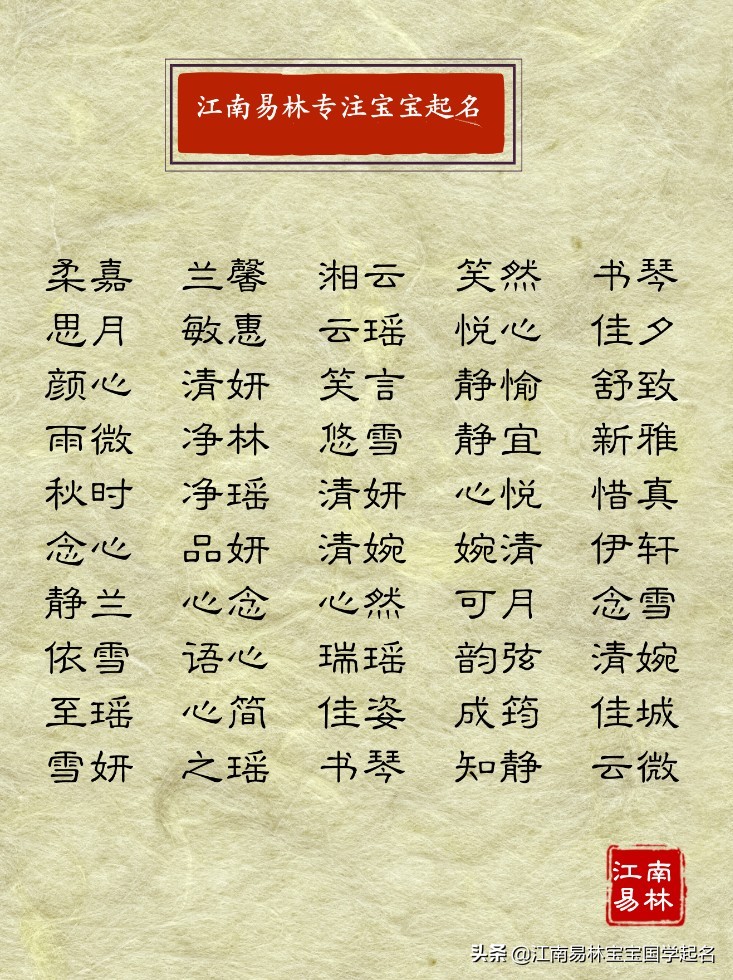 江南易林专注宝宝起名
柔嘉 兰馨 湘云 笑然 书琴
思月 敏惠 云瑶 悦心 佳夕
颜心 清妍 笑言 静愉 舒致
雨微 净林 悠雪 静宜 新雅
秋时 净瑶 清妍 心悦 惜真
念心 品妍 清婉 婉清 伊轩
静兰 心念 心然 可月 念雪
依雪 语心 瑞瑶 韵弦 清婉
至瑶 心简 佳姿 成筠 佳城
雪妍 之瑶 书琴 知静 云微
江南
易林
头条 @江南易林宝宝国学起名